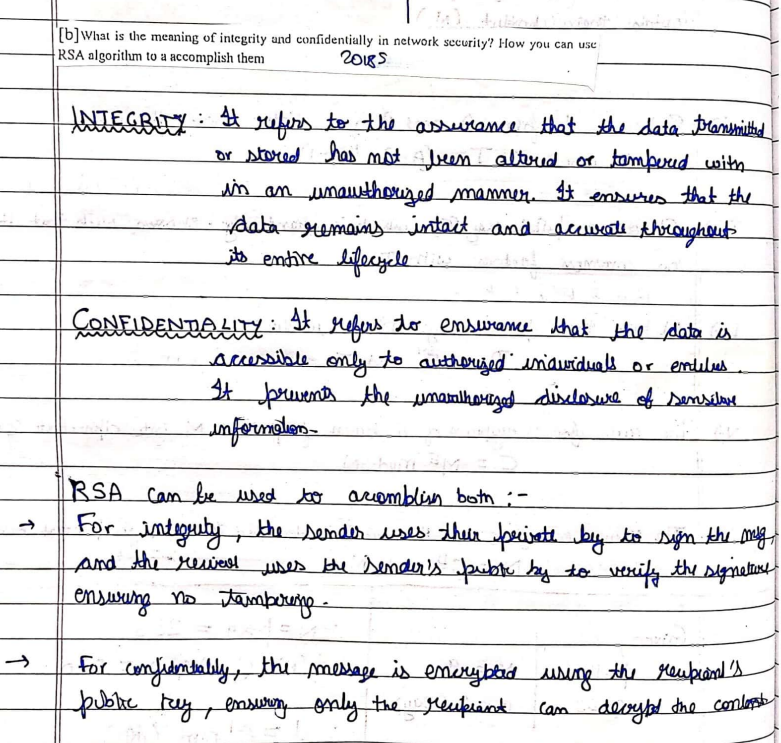 [b]What is the meaning of integrity and confidentially in network security? How you can use
RSA algorithm to a accomplish them 2018S
INTEGRITY : It refers to the assurance that the data transmitted
or stored has not been altered or tampered with
in an unauthorized manner. It ensures that the
data remains intact and accurate throughout
its entire lifecycle.
CONFIDENTIALITY : It refers to ensurance that the data is
accessible only to authorized individuals or entities.
It prevents the unauthorized disclosure of sensitive
information-
RSA can be used to accomblish both :-
→ For integrity, the sender uses their private key to sign the msg,
and the uses the sender's public key to verify the signature
ensuring no tampering.
→ For confidentiality, the message is encrypted using the recipient's
public key, ensuring only the recipient can decrypt the content